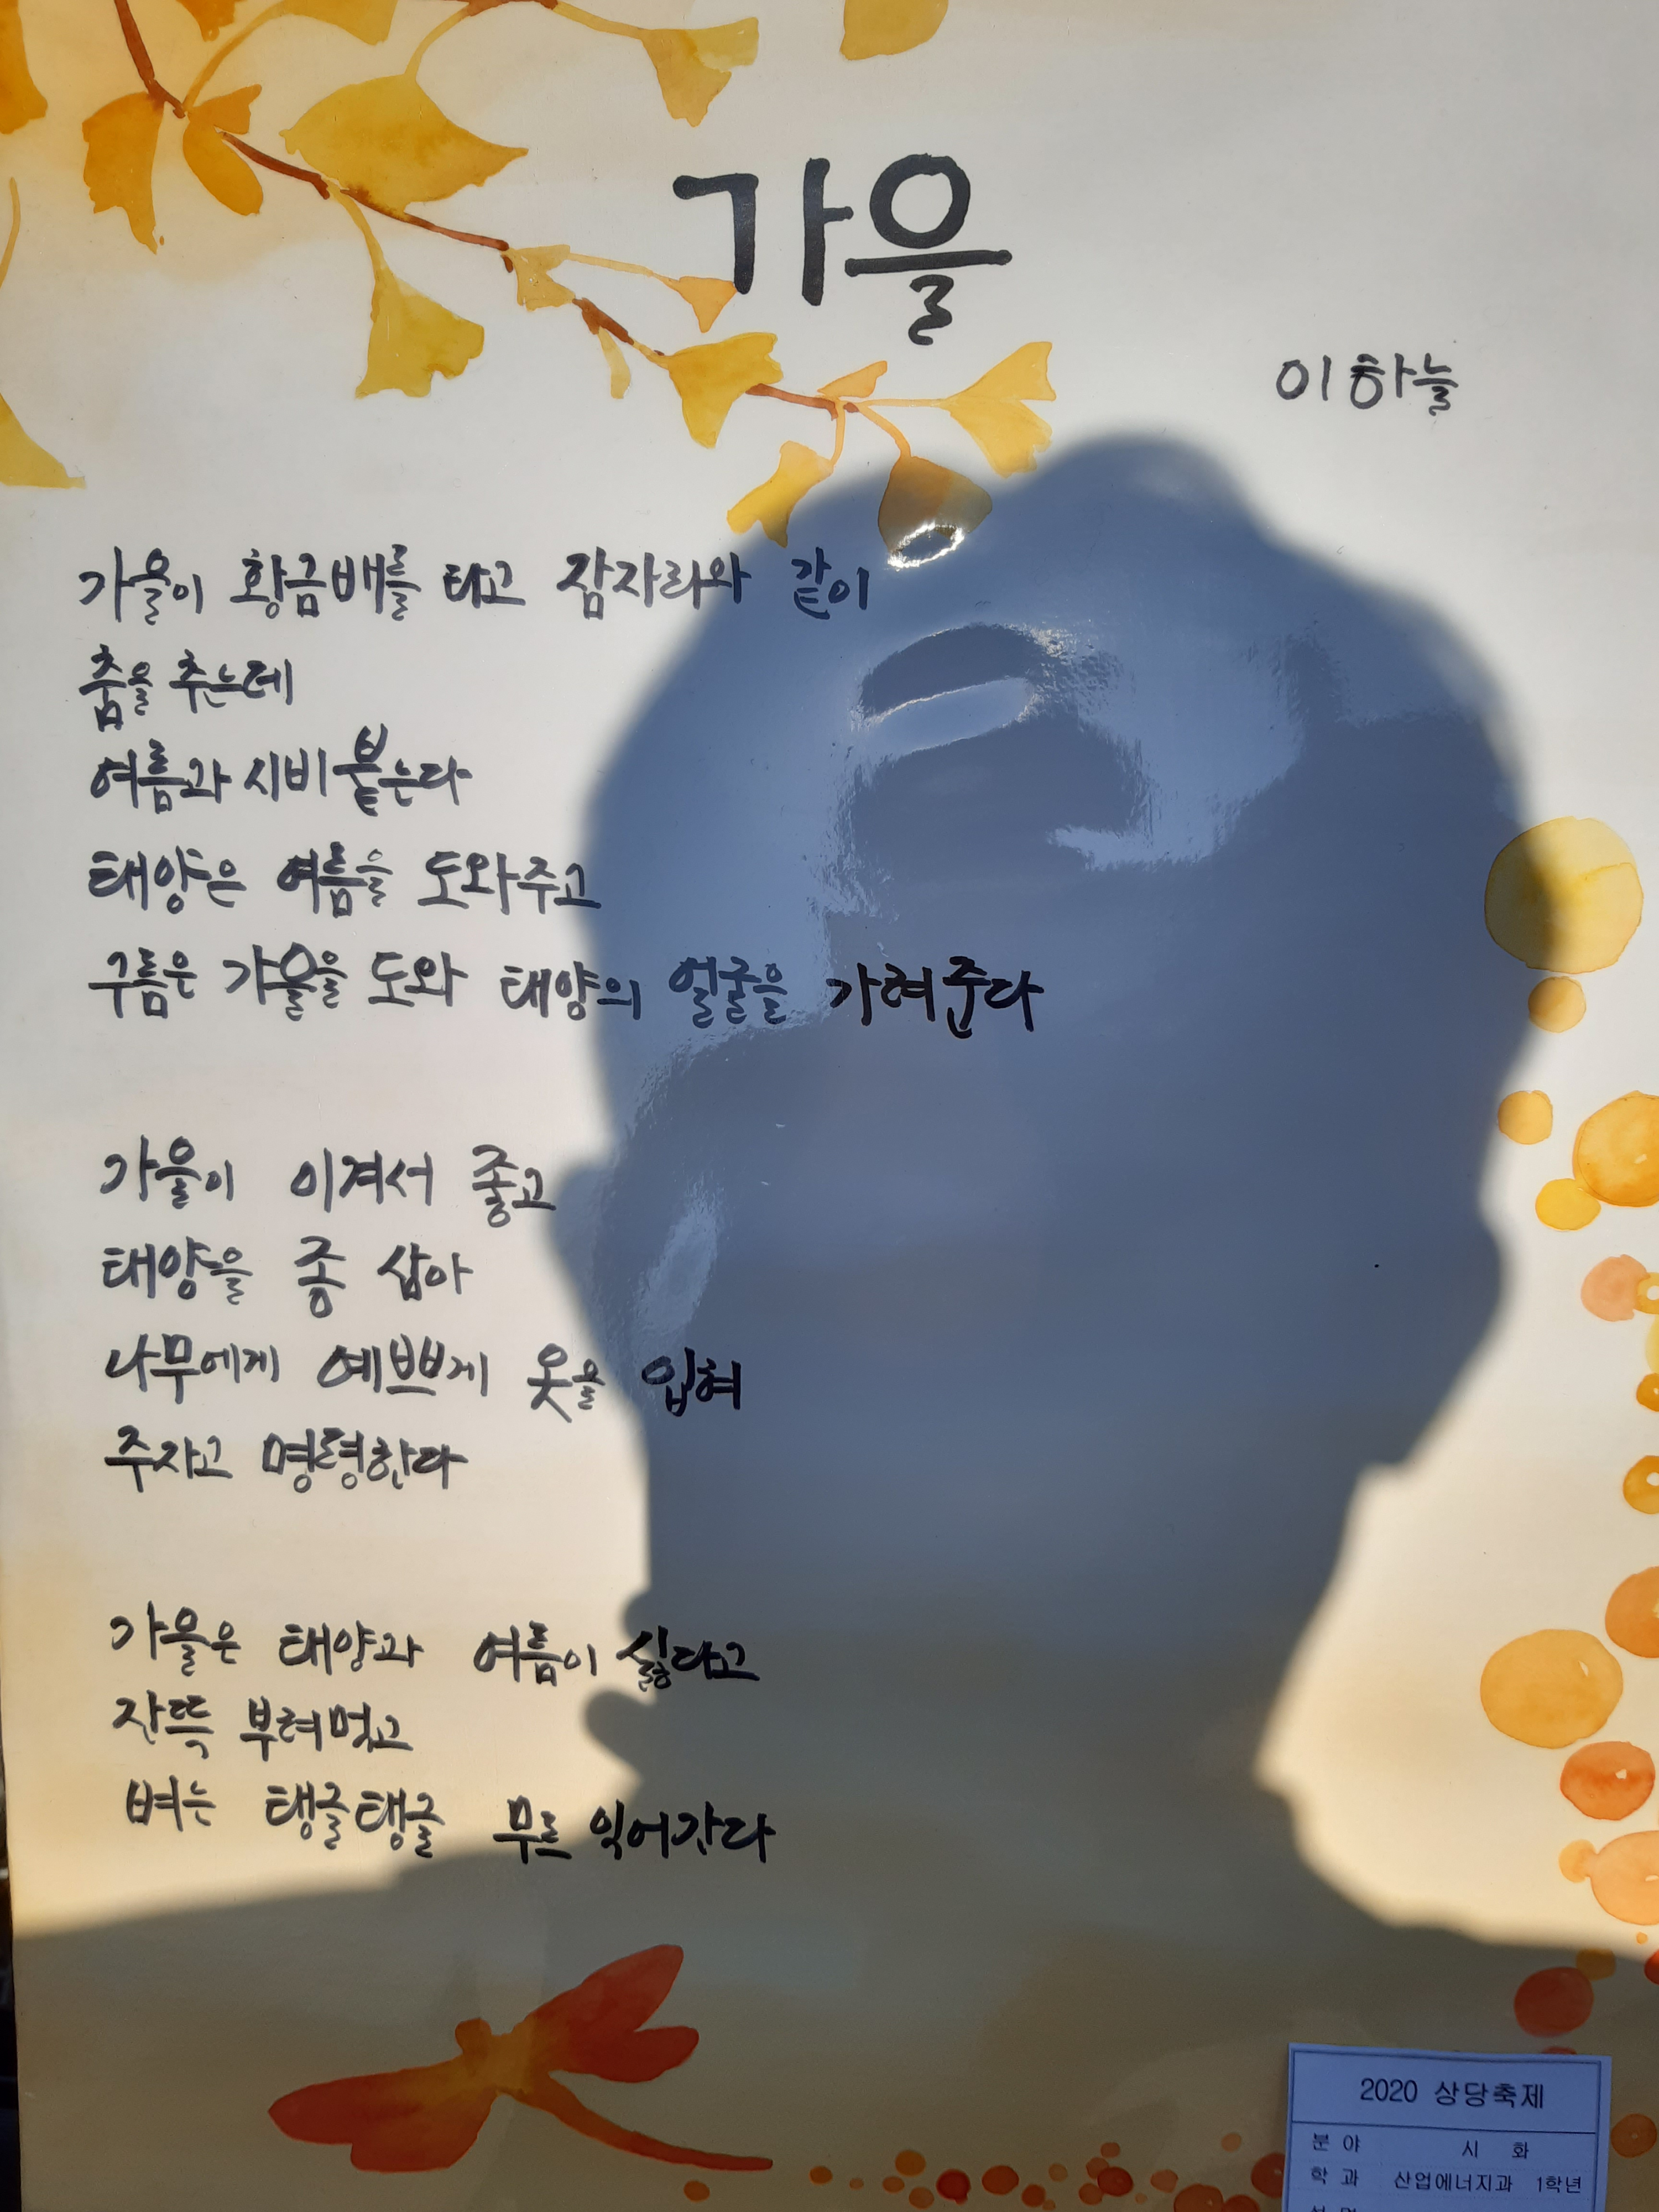 가을
이하늘
가을이 황금배를 타고 잠자리와 같이
춤을 추는데
여름과 시비 붙는다
태양은 여름을 도와주고
구름은 가을을 도와 태양의 얼굴을 가려준다
가을이 이겨서 좋고
태양을 종 삼아
나무에게 예쁘게 옷을 입혀
주자고 명령한다
가을은 태양과 여름이 싫다고
잔뜩 부려먹고
벼는 탱글탱글 무르 익어간다
2020 상당축제
분 야 시 화
학 과 산업에너지과 1학년